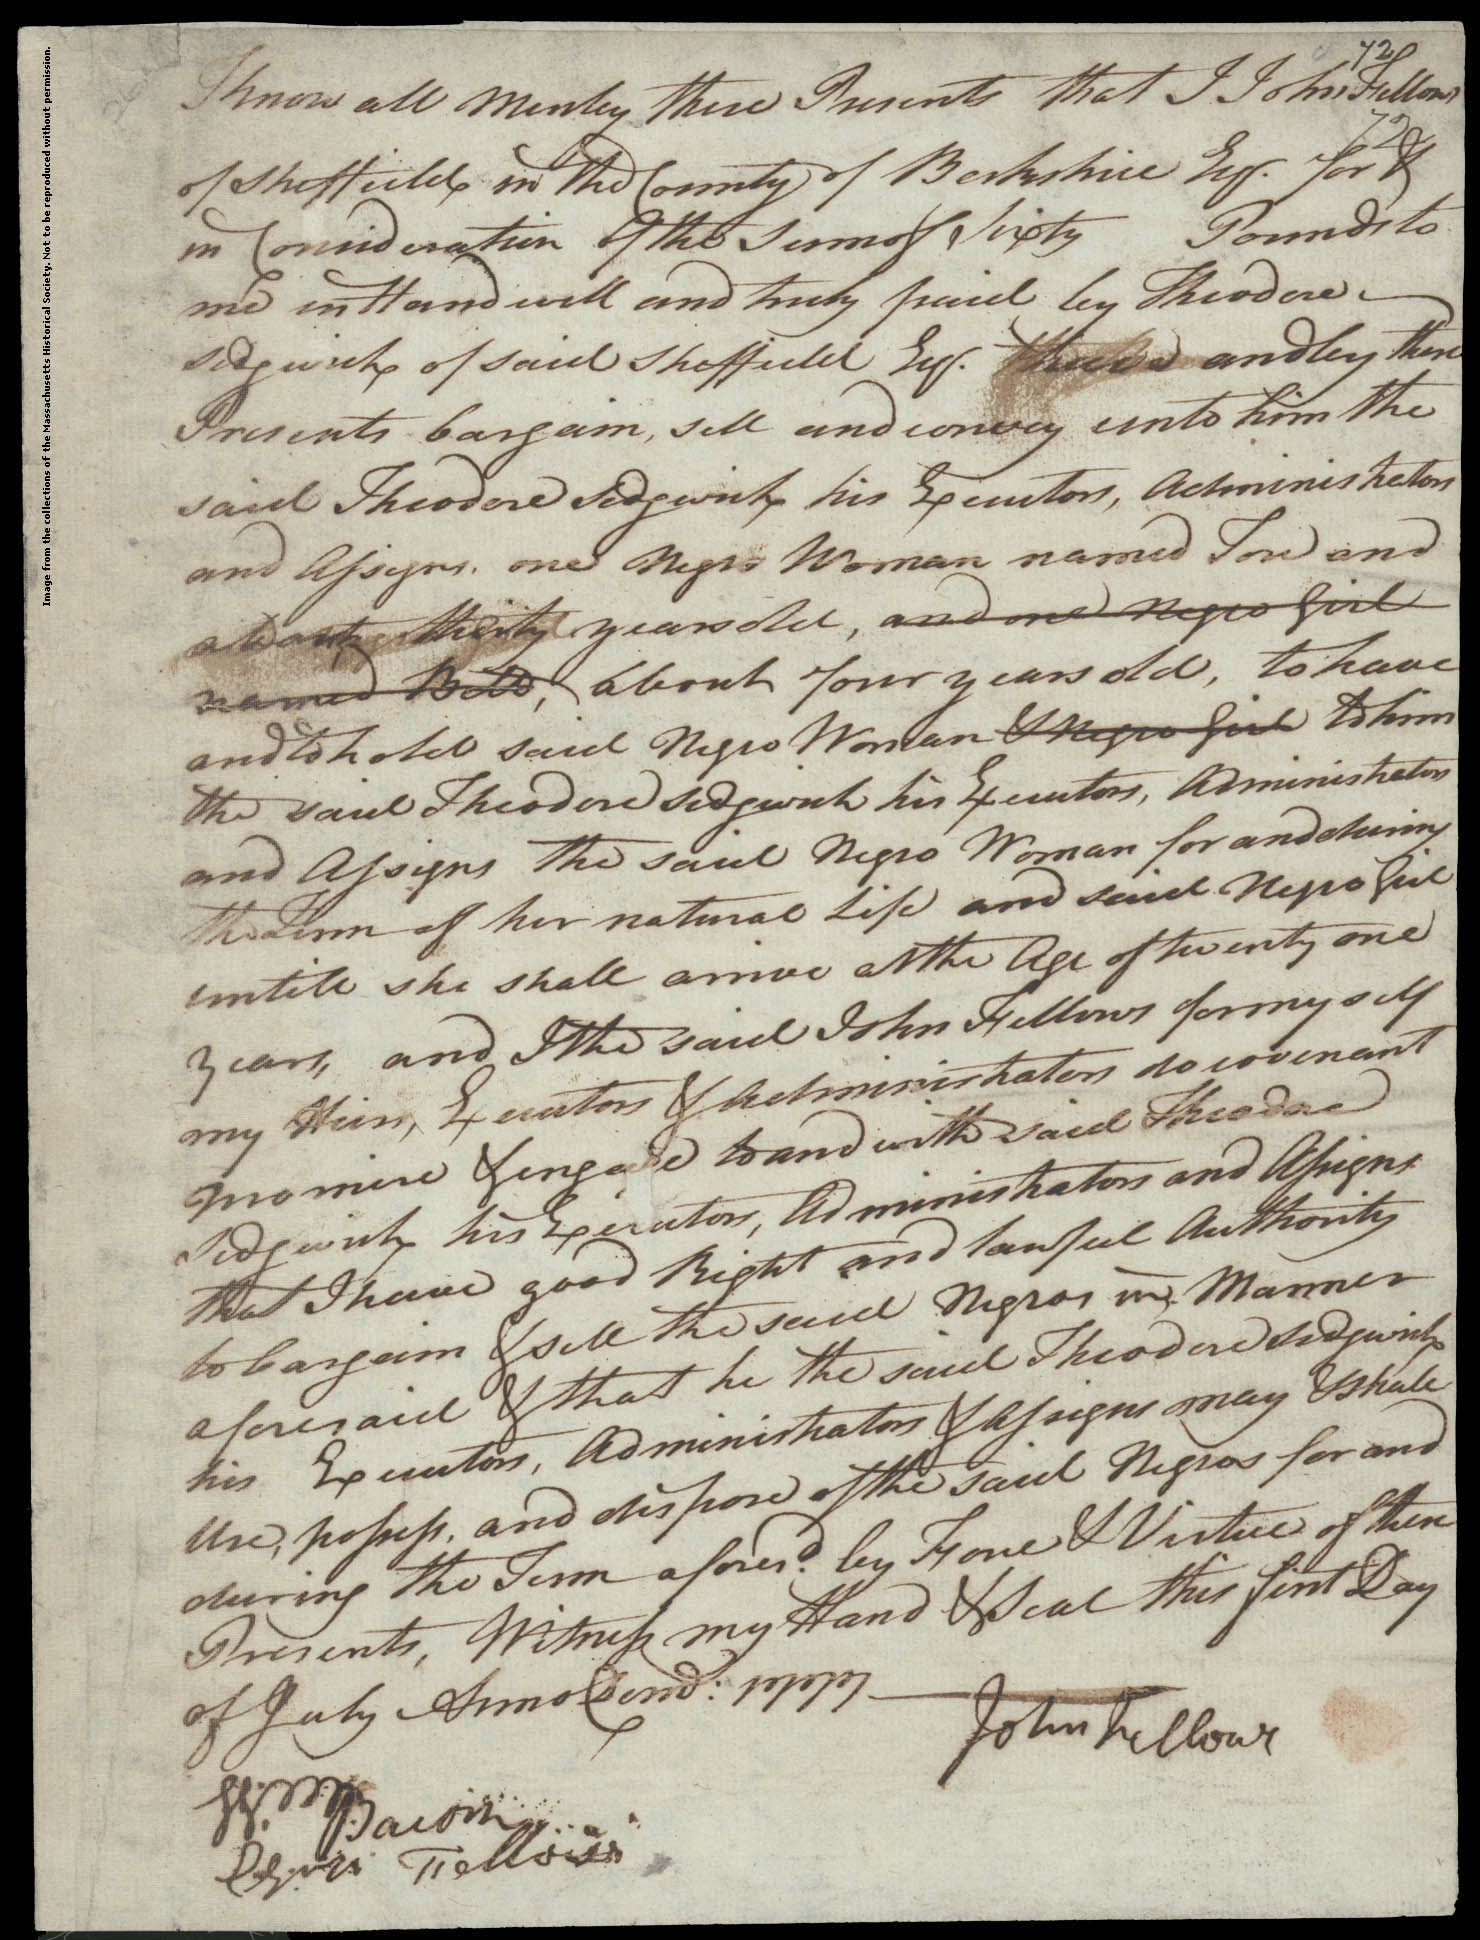 72
Know all Men by these Presents that I John Fellows
72
of Sheffield in the County of Berkshire Esqr. for &
in Consideration of the Sum of Sixty Pounds to
me in Hand well and truly paid by Theodore
Sedgwick of said Sheffield Esqr. and by these
Presents bargain, sell and convey unto him the
said Theodore Sedgwick his Executors, Administrators
and Assigns. one Negro Woman named Ton and
about thirty years old, and one Negro Girl
named Bett, about four years old, to have
and to hold said Negro Woman & Negro Girl to him
the said Theodore Sedgwick his Executors, Administrators
and Assigns the said Negro Woman for and during
the Term of her natural Life and said Negro Girl
untill she shall arrive at the Age of twenty one
years, and I the said John Fellows for myself
my Heirs, Executors & Administrators do covenant
promise & engage to and with said Theodore
Sedgwick his Executors, Administrators and Assigns
that I have good Right and lawful Authority
to bargain & sell the said Negros in Manner
aforesaid & that he the said Theodore Sedgwick
his Executors, Administrators & Assigns may & shall
Use, possess, and dispose of the said Negros for and
during the Term afores.d by Force & Virtue of these
Presents, Witness my Hand & Seal this first Day
of July Anno Domd: 1777
John Fellows
Wm Bacon
Fellows
Image from the collections of the Massachusetts Historical Society. Not to be reproduced without permission.